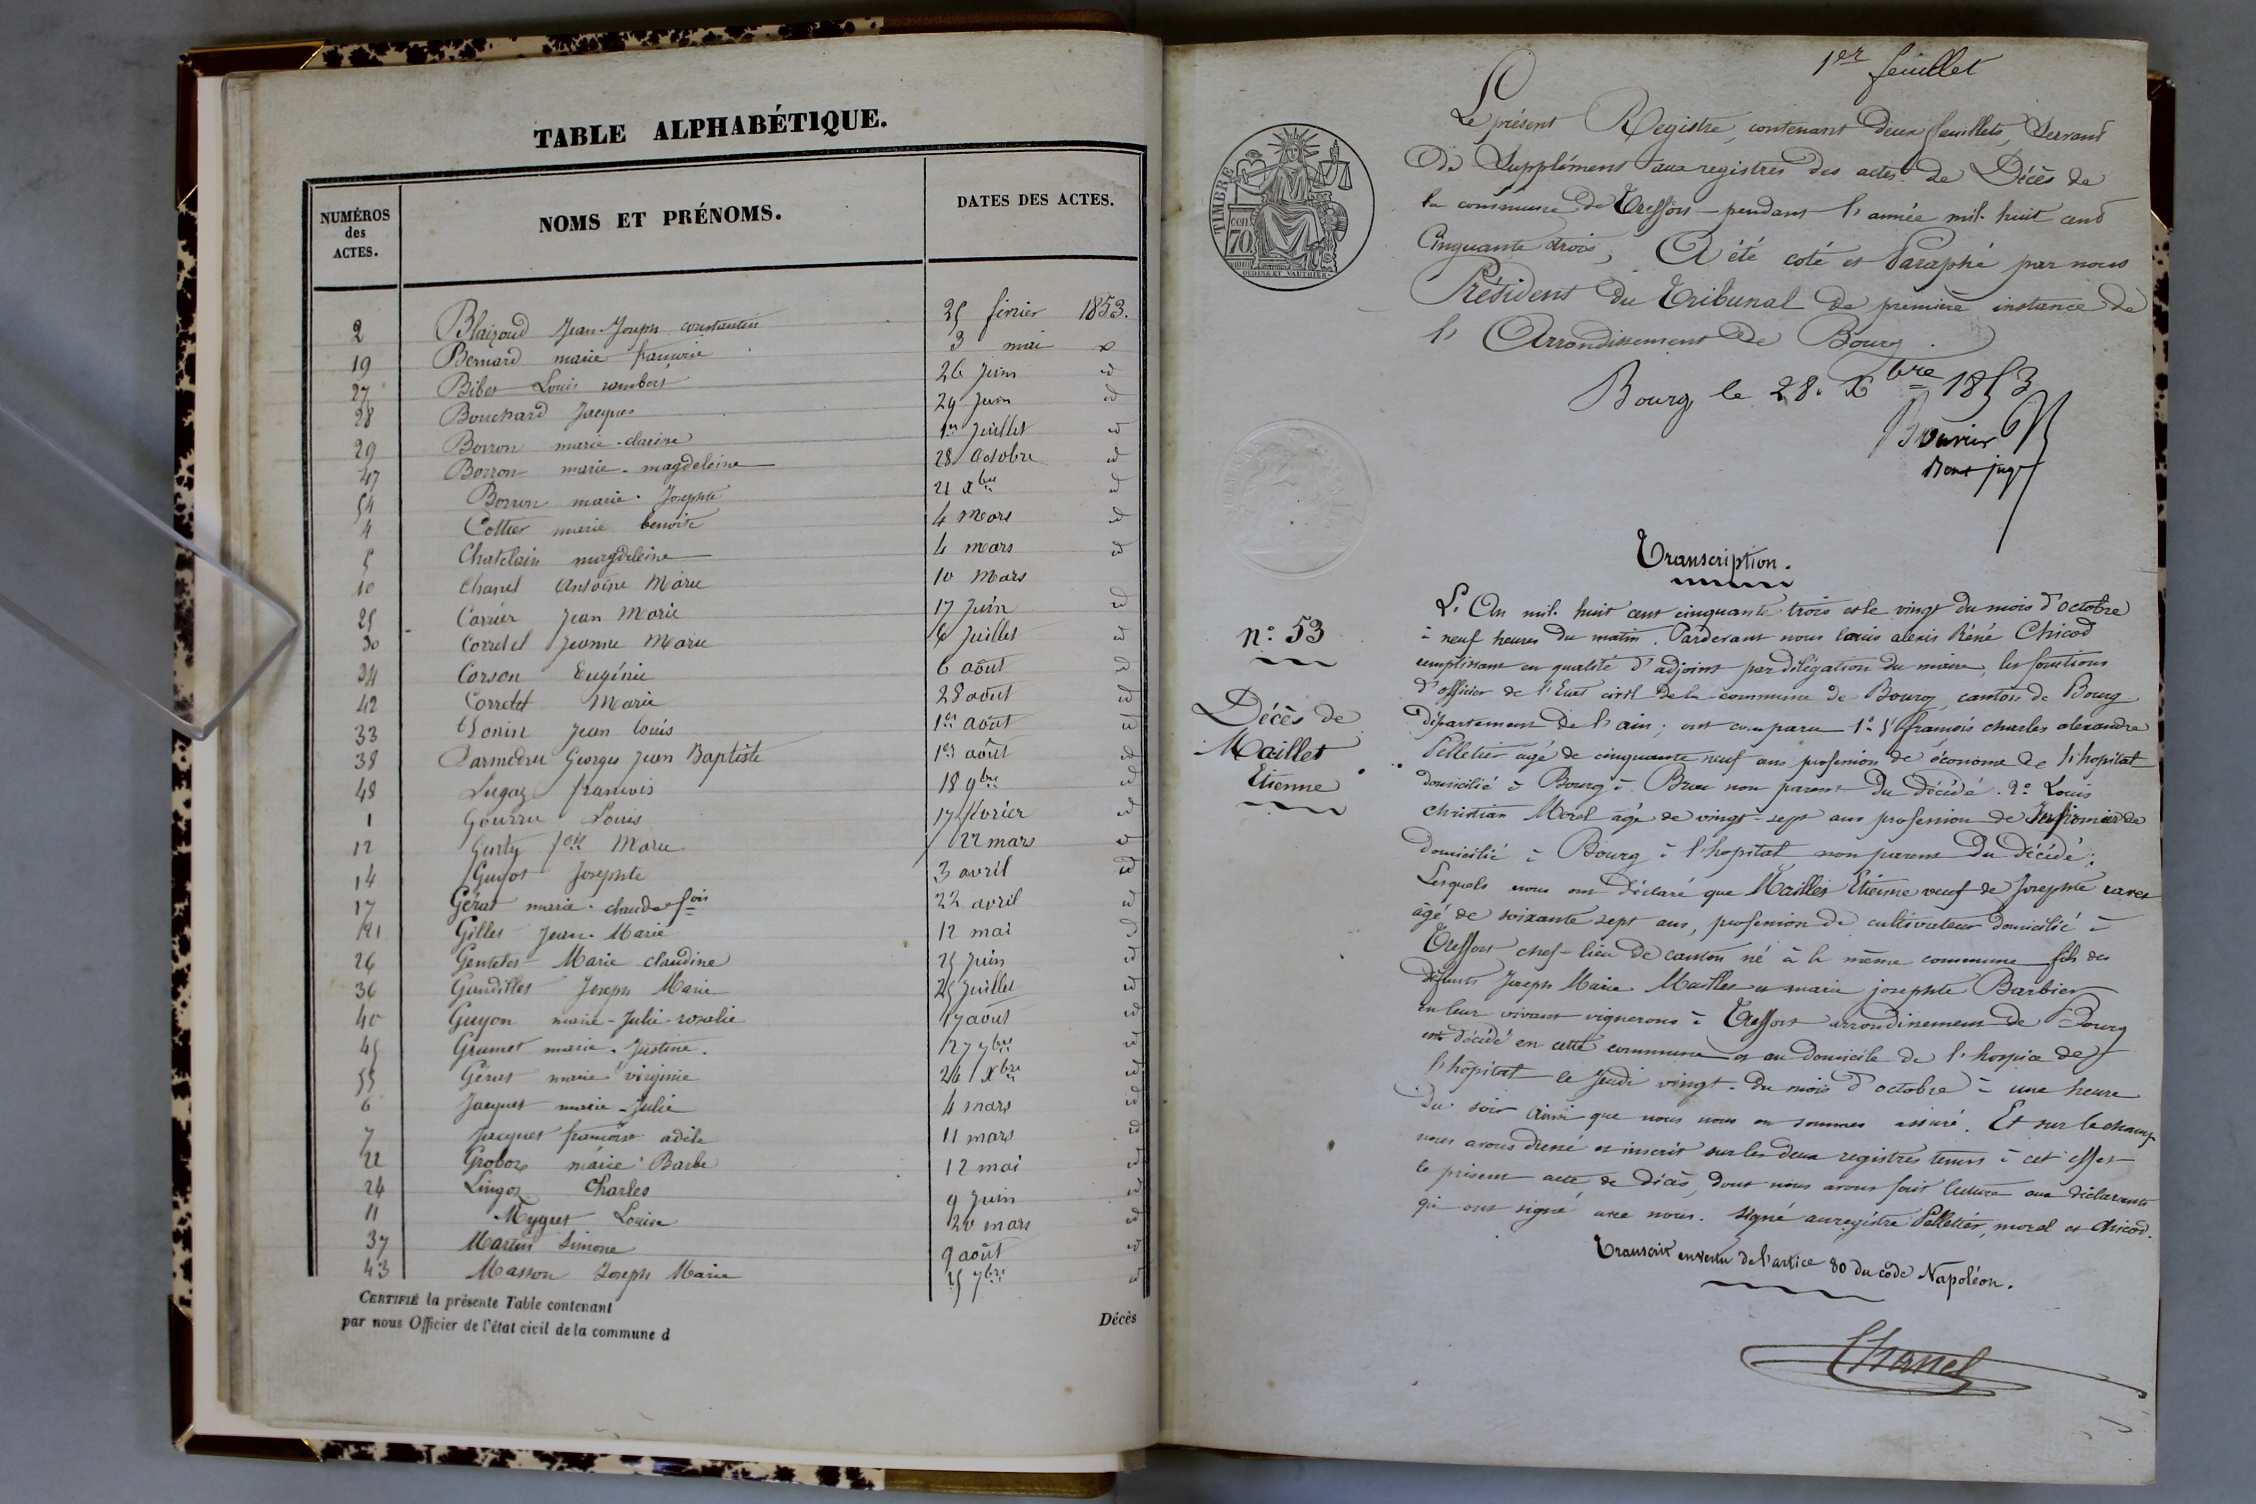 TABLE ALPHABÉTIQUE.
NUMÉROS des ACTES. NOMS ET PRÉNOMS. DATES DES ACTES.
2 Blaizoud Jean-Joseph constantin 25 février 1853.
19 Bernard marie francoise 3 mai
27 Bibet Louis rambert 26 Juin
28 Bouchard Jacques 29 Juin
29 Borron marie-claire 1er Juillet
47 Borron marie-magdeleine 28 octobre
54 Borron marie-Josephte 21 Xbre
4 Cottier marie benoite 4 Mars
5 Chatelain magdeleine 4 mars
10 Chanel Antoine Marie 10 Mars
25 Carrier Jean Marie 17 Juin
30 Corretel Jeanne Marie 6 Juillet
34 Corson Eugénie 6 août
42 Corretel Marie 28 août
33 Jean Louis 1er août
38 Georges Jean Baptiste 1er août
48 francois 18 9bre
1 Gourru Louis 17 février
12 Marie 22 mars
14 Guyot Josephte 3 avril
17 Gérat marie-claude fois 22 avril
21 Gilles Jean-Marie 12 mai
26 Marie claudine 25 Juin
36 Joseph Marie 25 Juillet
40 Guyon marie-Julie-rosalie 17 août
45 Grumet marie-Justine. 27 7bre
55 Gérat marie virginie 24 Xbre
6 Jacquet marie-Julie 4 mars
7 Jacquet francoise adèle 11 mars
22 Groboz marie Barbe 12 mai
24 Lingoz Charles 9 Juin
11 Myguet Louise 20 mars
37 Martin Simone 9 août
43 Masson Joseph Marie 25 7bre
CERTIFIÉ la présente Table contenant Décès
par nous Officier de l'état civil de la commune d
1er feuillet
TIMBRE
70
Le présent Registre, contenant deux feuillets, Servant
de Supplément aux registres des actes de Décès de
la commune de Treffort pendant l'année mil-huit cent
Cinquante trois, A été coté et Paraphé par nous
Président du Tribunal de première instance de
l'Arrondissement de Bourg.
Bourg le 28. Xbre 1853
Transcription.
n°. 53
Décès de
Maillet
Etienne
L'An mil-huit cent cinquante-trois et le vingt du mois d'octobre
à neuf heures du matin. Pardevant nous Louis alexis Réné Chicod
remplissant en qualité d'adjoint par délégation du maire, les fonctions
d'officier de l'Etat civil de la commune de Bourg, canton de Bourg
département de l'ain; ont comparu 1°. françois charles alexandre
Pelletier agé de cinquante neuf ans profession de économe de l'hopital
domicilié à Bourg à Brou non parent du décédé. 2°. Louis
christian Morel agé de vingt-sept ans profession de Infirmier de
domicilié à Bourg à l'hopital non parent du décédé.
Lesquels nous ont déclaré que Maillet Etienne veuf de Josephte
âgé de soixante sept ans, profession de cultivateur domicilié à
Treffort chef-lieu de canton né à la même commune fils des
défunts Joseph Marie Maillet et marie josephte Barbier
en leur vivant vignerons à Treffort arrondissement de Bourg
est décédé en cette commune et au domicile de l'hospice de
l'hopital le Jeudi vingt-du mois d'octobre à une heure
du soir ainsi que nous nous en sommes assuré. Et sur le champ
nous avons dressé et inscrit sur les deux registres tenus à cet effet
le présent acte de décès, dont nous avons fait lecture aux déclarants
qui ont signé avec nous. Signé au registre Pelletier, morel et chicod.
Transcrit en vertu de l'article 80 du code Napoléon.
Chanel